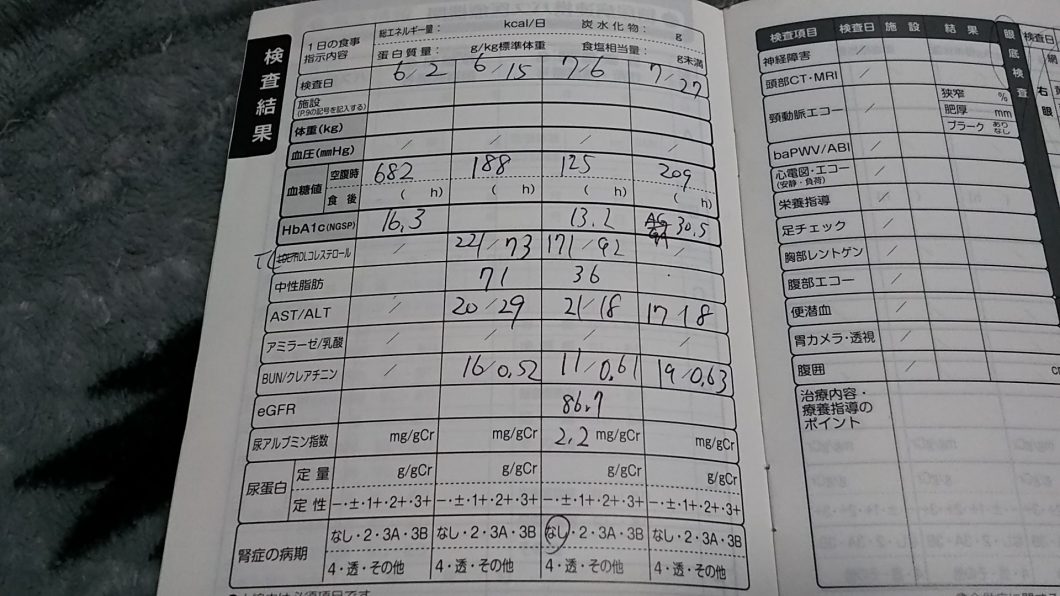 検査結果
1日の食事指示内容 総エネルギー量： kcal/日 炭水化物： g
蛋白質量： g/kg標準体重 食塩相当量： g未満
検査日 6/2 6/15 7/6 7/27
施設
(P.9の記号を記入する)
体重(kg)
血圧(mmHg) / / / /
血糖値 空腹時 682 188 125 209
食後 ( h) ( h) ( h) ( h)
HbA1c(NGSP) 16.3 13.2 GA 30.5
DLコレステロール / 221/73 171/92 /
中性脂肪 71 36
AST/ALT / 20/29 21/18 17/18
アミラーゼ/乳酸 / / / /
BUN/クレアチニン / 16/0.52 11/0.61 19/0.63
eGFR 86.7
尿アルブミン指数 mg/gCr mg/gCr 2.2 mg/gCr mg/gCr
尿蛋白 定量 g/gCr g/gCr g/gCr g/gCr
定性 −・±・1+・2+・3+ −・±・1+・2+・3+ −・±・1+・2+・3+ −・±・1+・2+・3+
腎症の病期 なし・2・3A・3B なし・2・3A・3B なし・2・3A・3B なし・2・3A・3B
4・透・その他 4・透・その他 4・透・その他 4・透・その他
検査項目 検査日 施設 結果
神経障害 /
頭部CT・MRI /
頸動脈エコー / 狭窄 %
肥厚 mm
プラーク あり なし
baPWV/ABI /
心電図・エコー /
(安静・負荷)
栄養指導 /
足チェック /
胸部レントゲン /
腹部エコー /
便潜血 /
胃カメラ・透視 /
腹囲 / c
治療内容・
療養指導の
ポイント
眼底検査
検査日
右眼